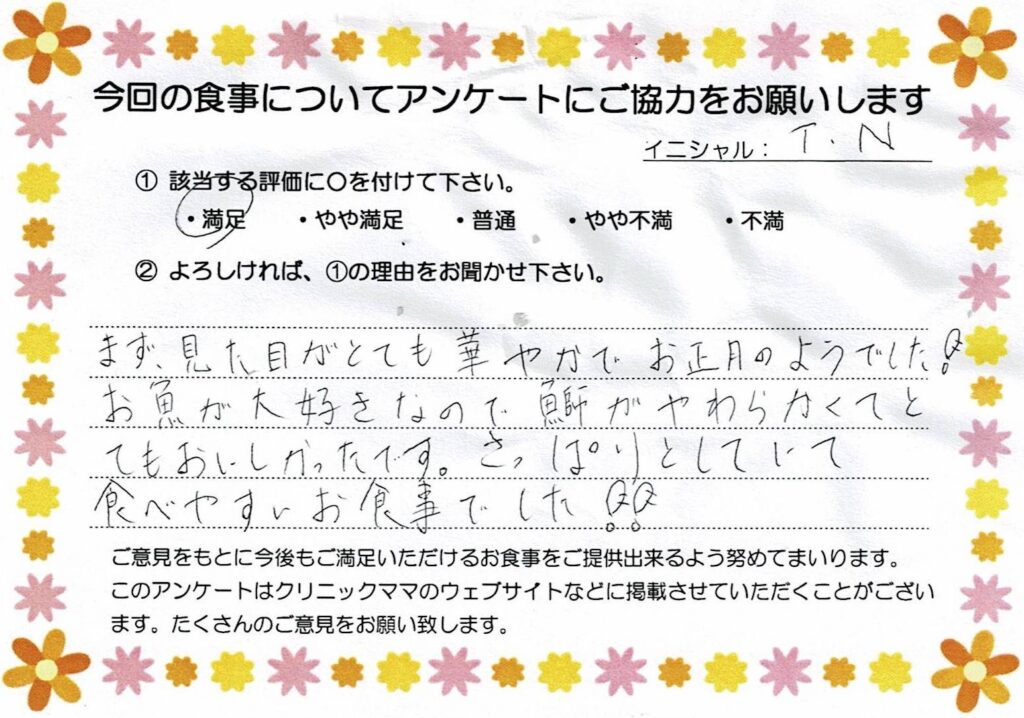 今回の食事についてアンケートにご協力をお願いします
イニシャル： T.N
① 該当する評価に〇を付けて下さい。
・満足 ・やや満足 ・普通 ・やや不満 ・不満
② よろしければ、①の理由をお聞かせ下さい。
まず、見た目がとても華やかでお正月のようでした!
お魚が大好きなので鰤がやわらかくてと
てもおいしかったです。さっぱりとしていて
食べやすいお食事でした!!
ご意見をもとに今後もご満足いただけるお食事をご提供出来るよう努めてまいります。
このアンケートはクリニックママのウェブサイトなどに掲載させていただくことがござい
ます。たくさんのご意見をお願い致します。